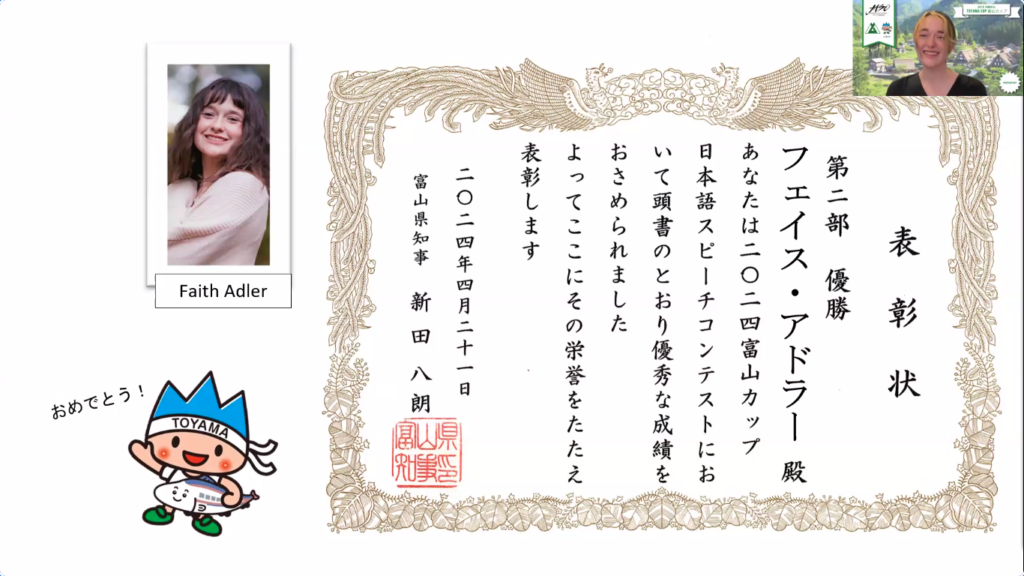 Faith Adler
おめでとう！
TOYAMA
表彰状
第二部　優勝
フェイス・アドラー 殿
あなたは二〇二四富山カップ
日本語スピーチコンテストにお
いて頭書のとおり優秀な成績を
おさめられました
よってここにその栄誉をたたえ
表彰します
二〇二四年四月二十一日
富山県知事　新田八朗
富山県知事印